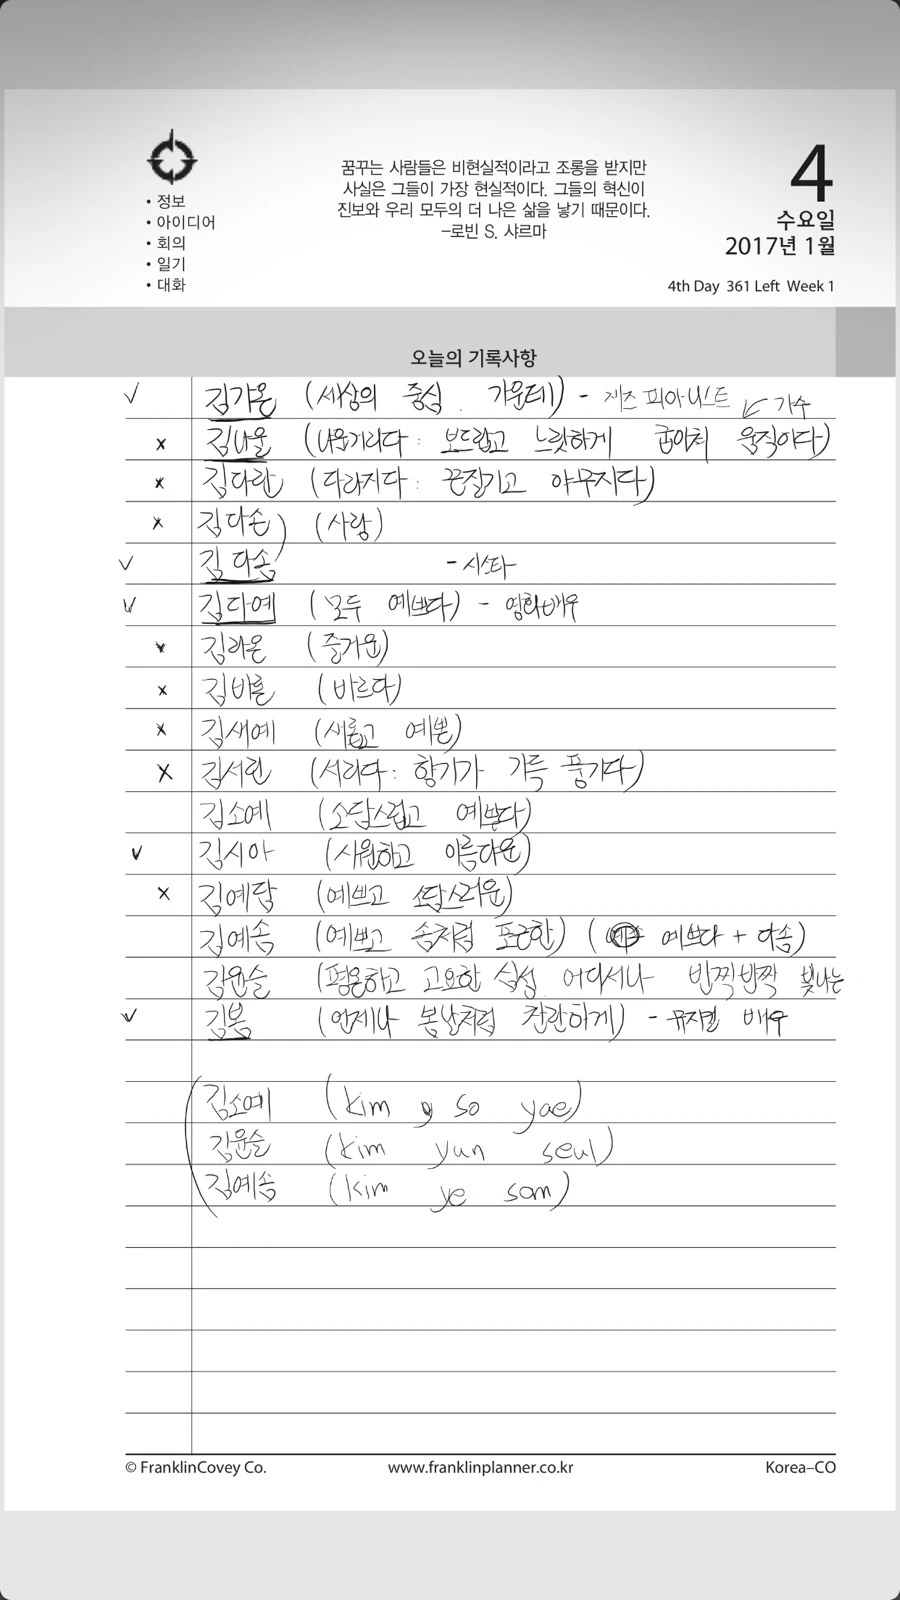 꿈꾸는 사람들은 비현실적이라고 조롱을 받지만
사실은 그들이 가장 현실적이다. 그들의 혁신이
진보와 우리 모두의 더 나은 삶을 낳기 때문이다.
-로빈 S. 샤르마
• 정보
• 아이디어
• 회의
• 일기
• 대화
4
수요일
2017년 1월
4th Day 361 Left Week 1
오늘의 기록사항
✓ 김가온 (세상의 중심. 가운데) - 재즈 피아니스트
↙ 가수
x 김나울 (나울거리다: 보드랍고 느릿하게 굽이쳐 움직이다)
x 김다란 (다라지다: 끈질기고 야무지다)
x 김다손 (사랑)
✓ 김다솜 - 시스타
✓ 김다예 (모두 예쁘다) - 영화배우
x 김라온 (즐거운)
x 김바를 (바르다)
x 김새예 (새롭고 예쁜)
x 김서린 (서리다: 향기가 가득 풍기다)
김소예 (소담스럽고 예쁘다)
✓ 김시아 (시원하고 아름다운)
x 김예담 (예쁘고 소담스러운)
김예솜 (예쁘고 솜처럼 포근한) ( 예쁘다 + 다솜)
김윤슬 (평온하고 고요한 심성 어디서나 반짝반짝 빛나는
✓ 김봄 (언제나 봄날처럼 찬란하게) - 뮤지컬 배우
김소예 (kim so yae)
김윤슬 (kim yun seul)
김예솜 (kim ye som)
© FranklinCovey Co.
www.franklinplanner.co.kr
Korea–CO